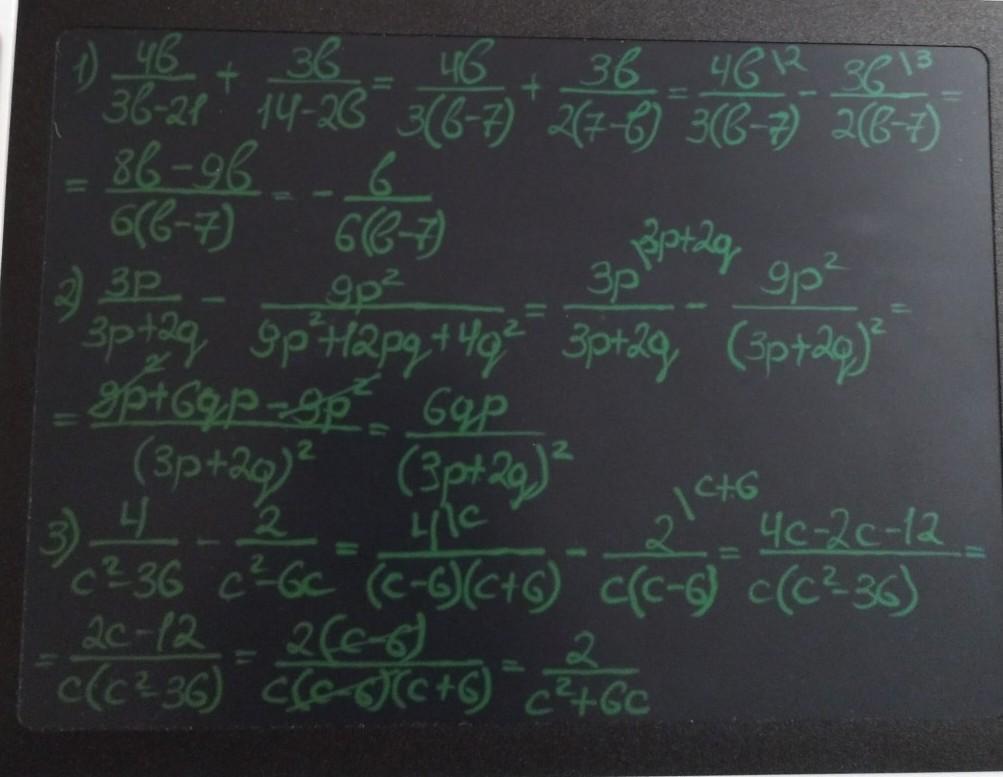 1) 4b/(3b-21) + 3b/(14-2b) = 4b/(3(b-7)) + 3b/(2(7-b)) = 4b\2/(3(b-7)) - 3b\3/(2(b-7)) =
= (8b-9b)/(6(b-7)) = - b/(6(b-7))
2) 3p/(3p+2q) - 9p²/(9p²+12pq+4q²) = 3p\3p+2q/(3p+2q) - 9p²/(3p+2q)² =
= (9p²+6qp-9p²)/(3p+2q)² = 6qp/(3p+2q)²
3) 4/(c²-36) - 2/(c²-6c) = 4\c/((c-6)(c+6)) - 2\c+6/(c(c-6)) = (4c-2c-12)/(c(c²-36)) =
= (2c-12)/(c(c²-36)) = 2(c-6)/(c(c-6)(c+6)) = 2/(c²+6c)